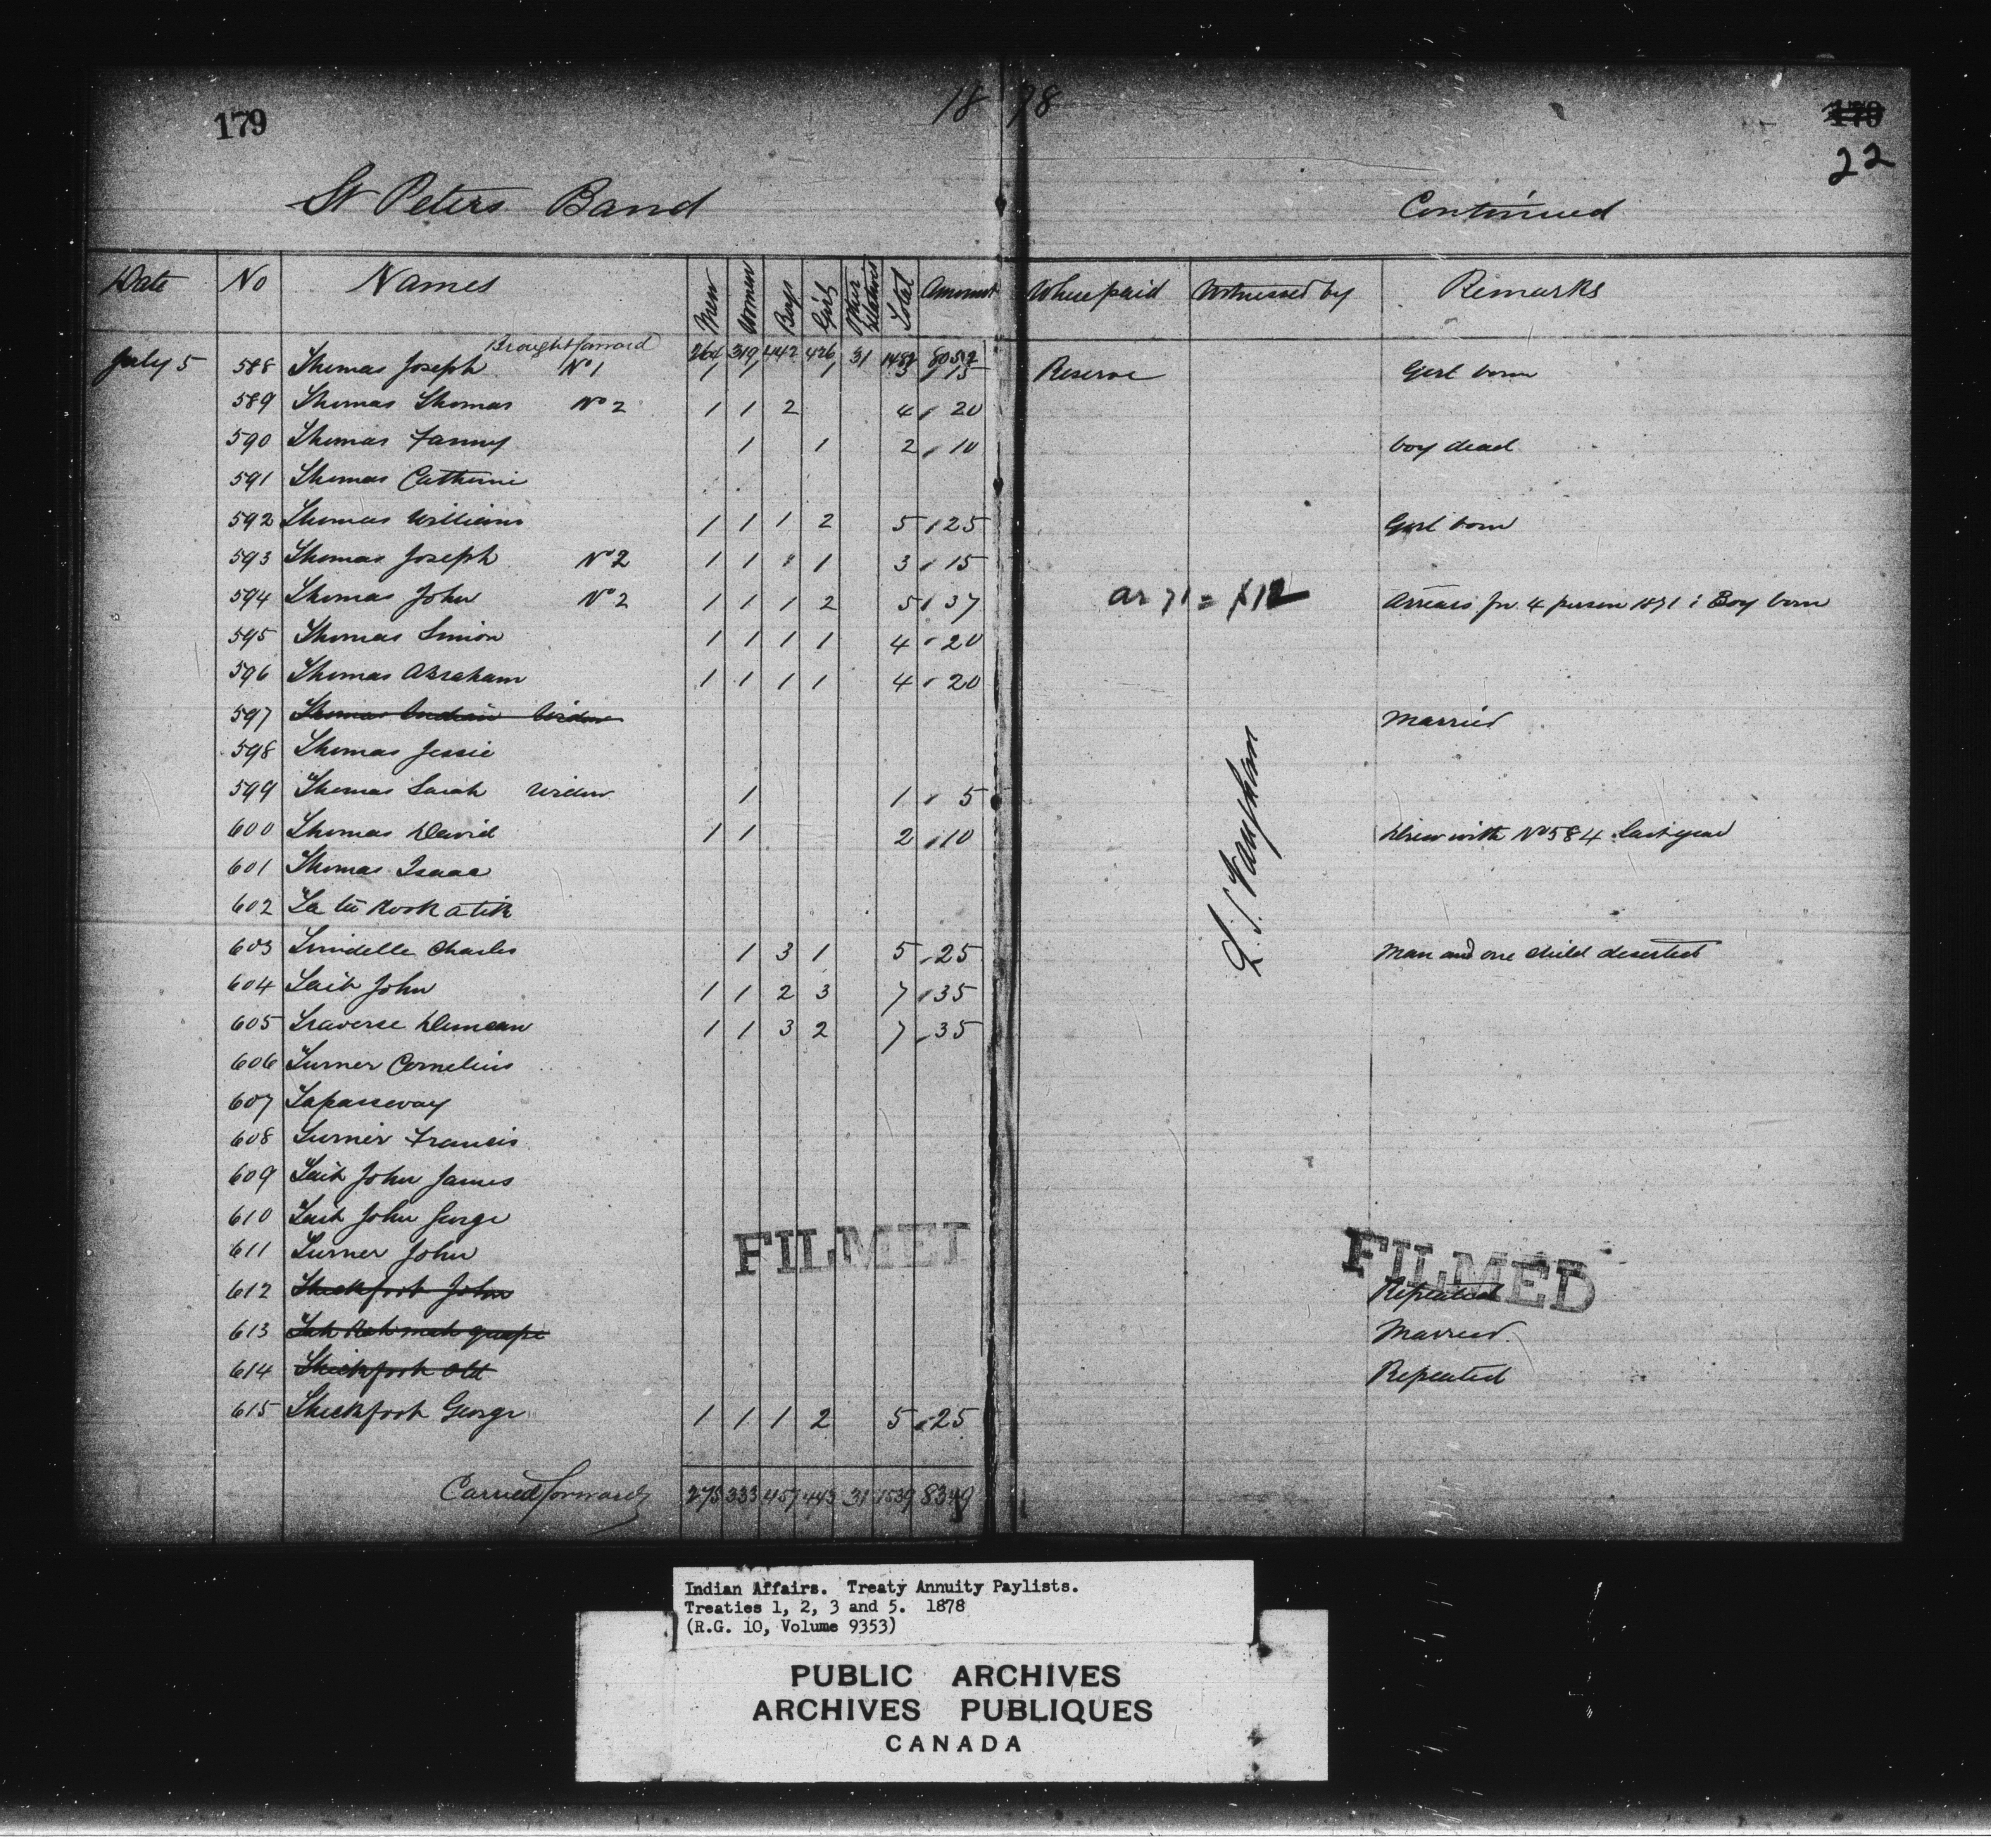 179
18 78
179
22
St Peters Band Continued
Date No Names Men Women Boys Girls Other Relatives Total Amount Where paid Witnessed by Remarks
Brought forward 264 319 442 426 31 1482 8052
July 5 588 Thomas Joseph No 1 1 1 1 3 15 Reserve Girl born
589 Thomas Thomas No 2 1 1 2 4 20
590 Thomas Fanny 1 1 2 10 boy dead
591 Thomas Catherine
592 Thomas William 1 1 1 2 5 25 Girl born
593 Thomas Joseph No 2 1 1 1 3 15
594 Thomas John No 2 1 1 1 2 5 37 ar 71 = $12 Arrears for 4 person 1871 : Boy born
595 Thomas Simon 1 1 1 1 4 20
596 Thomas Abraham 1 1 1 1 4 20
597 Thomas Widow Married
598 Thomas Jessie
599 Thomas Sarah Widow 1 1 5
600 Thomas David 1 1 2 10 Drew with No 584 last year
601 Thomas Isaac
602 Ta tu kook a tik
603 Charles 1 3 1 5 25 Man and one child deserted
604 Tait John 1 1 2 3 7 35
605 Traverse Duncan 1 1 3 2 7 35
606 Turner Cornelius
607 Tapassway
608 Turner Francis
609 Tait John James
610 Tait John George
611 Turner John
612 Thickfoot John Repeated
613 Married
614 Thickfoot Old Repeated
615 Thickfoot George 1 1 1 2 5 25
Carried forward 275 333 457 443 31 1539 8349
L. S. Vaughan
FILMED
FILMED
Indian Affairs. Treaty Annuity Paylists.
Treaties 1, 2, 3 and 5. 1878
(R.G. 10, Volume 9353)
PUBLIC ARCHIVES
ARCHIVES PUBLIQUES
CANADA